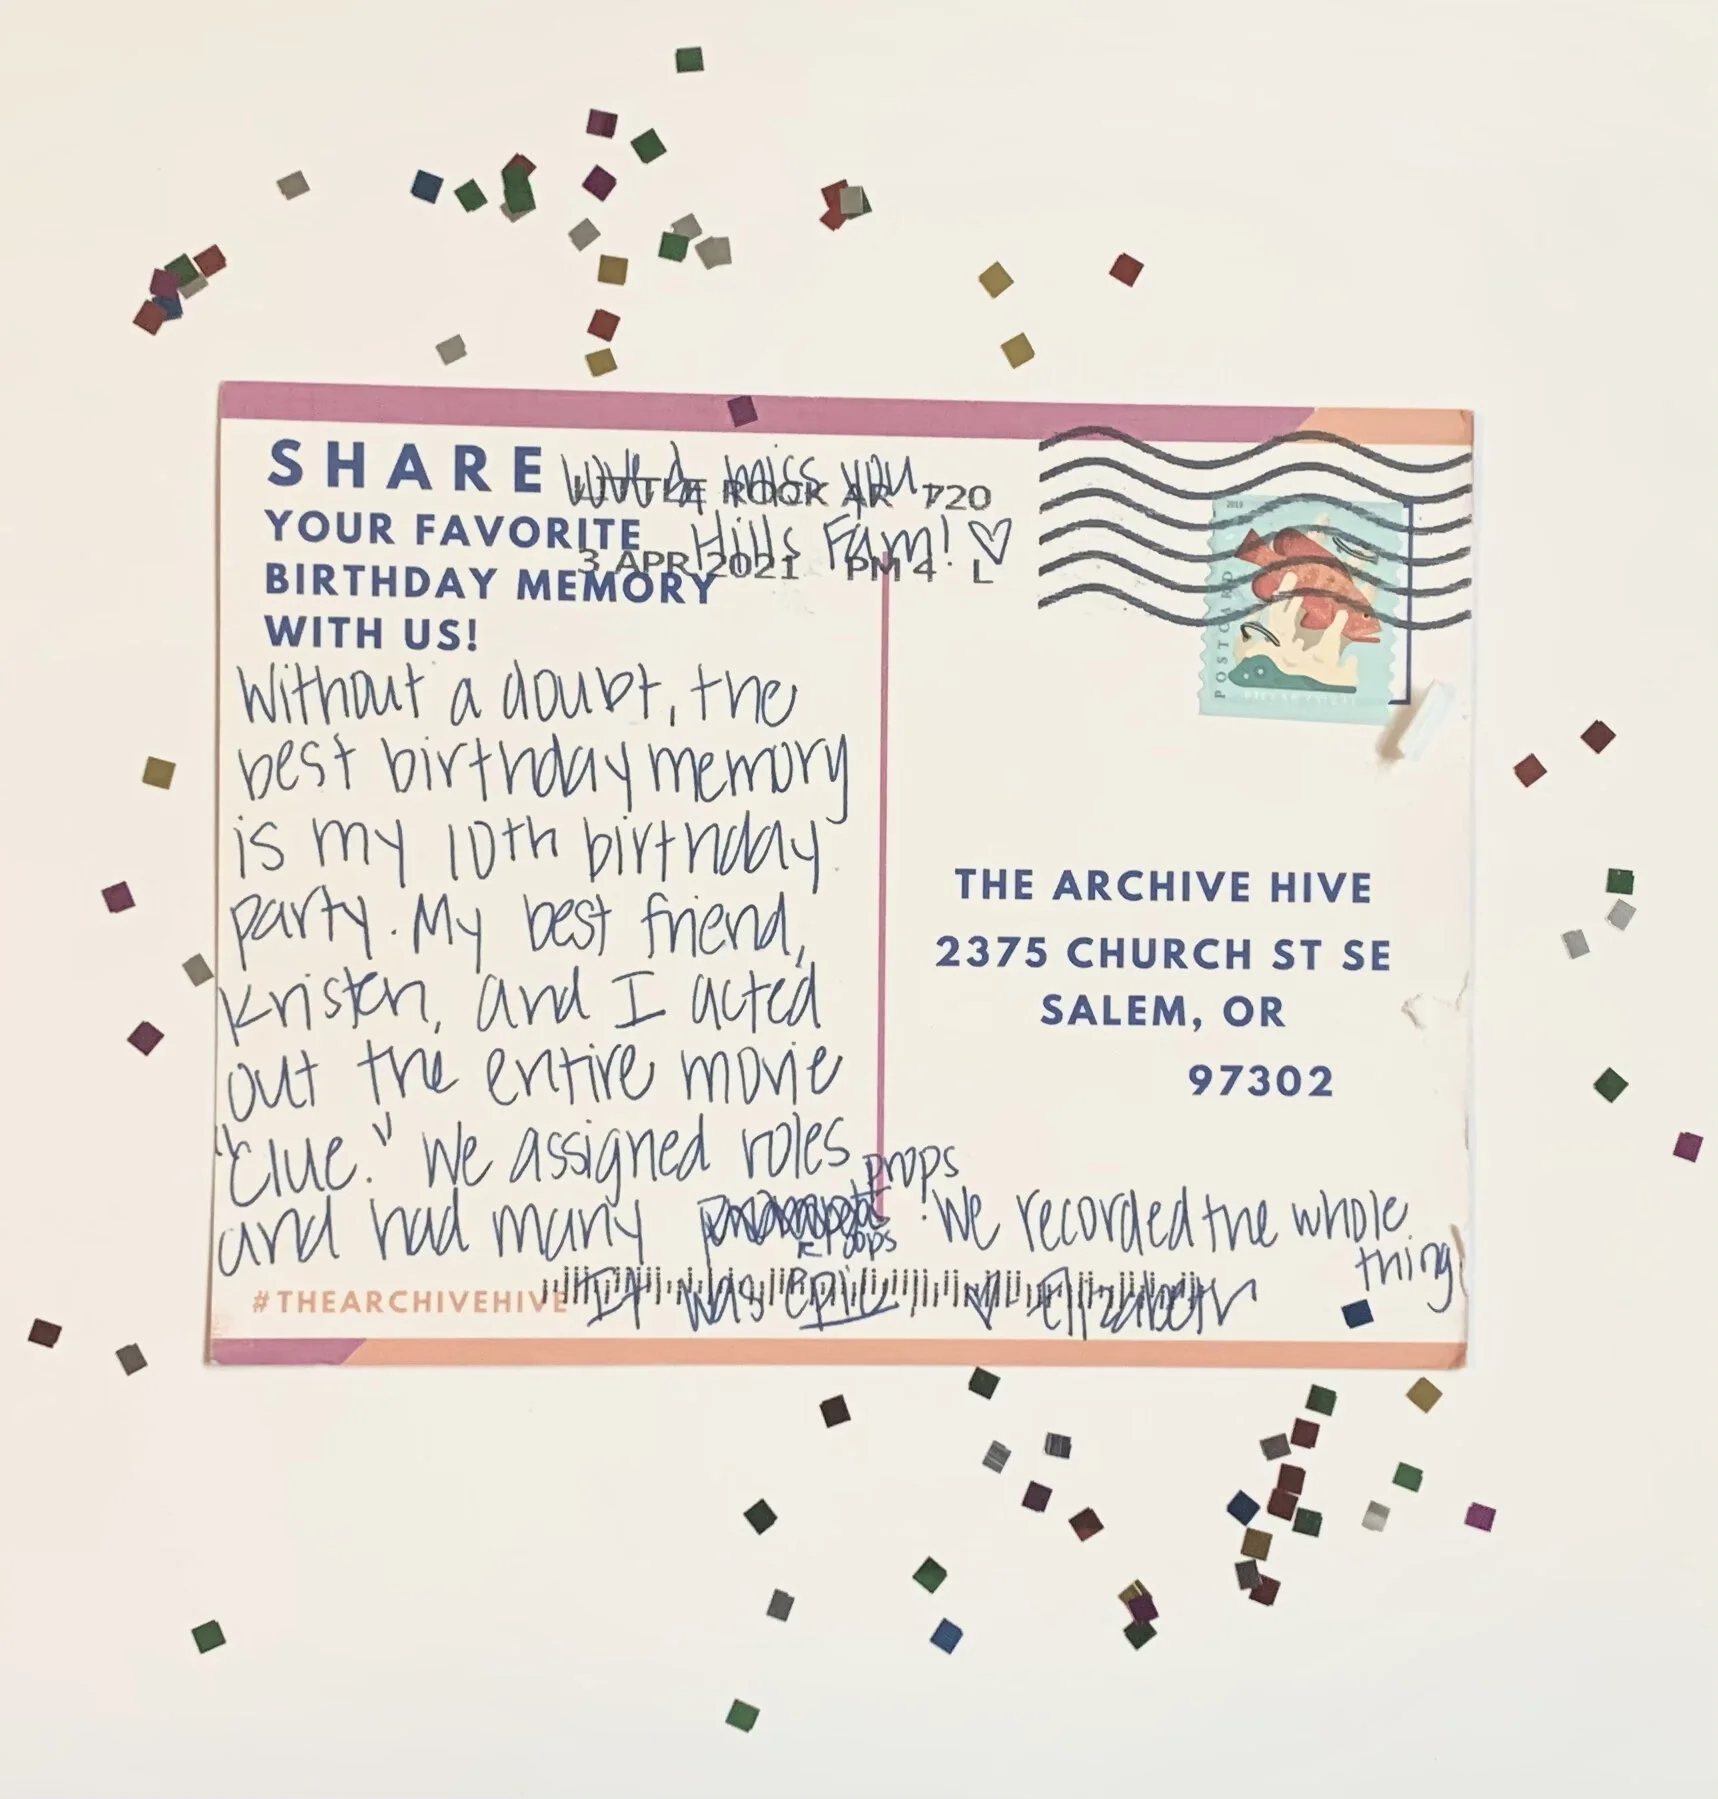 SHARE
YOUR FAVORITE
BIRTHDAY MEMORY
WITH US!
Love & miss you,
Hills Fam! ♡
LITTLE ROCK AR 720
3 APR 2021 PM 4 L
2019
POSTCARD
Without a doubt, the
best birthday memory
is my 10th birthday
party. My best friend,
Kristen, and I acted
out the entire movie
"Clue." We assigned roles
and had many props. We recorded the whole
thing
oops
It was epic ♡ Elizabeth
#THEARCHIVEHIVE
THE ARCHIVE HIVE
2375 CHURCH ST SE
SALEM, OR
97302